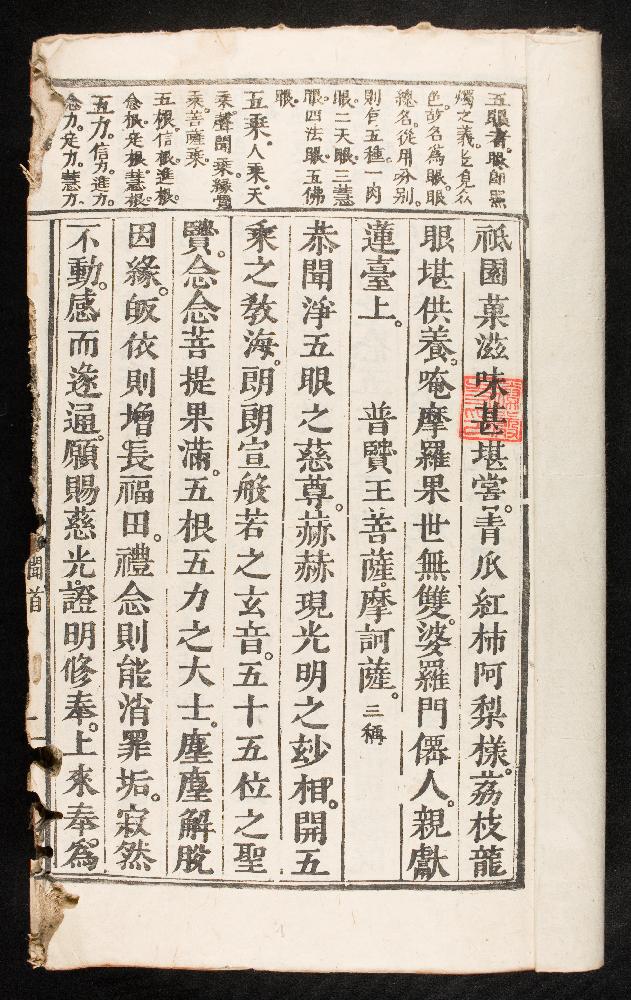 五眼者眼即照
燭之義也見衆
色故名為眼眼
總名從用分别
則有五種一肉
眼二天眼三慧
眼四法眼五佛
眼
五乘人乘天
乘聲聞乘緣覺
乘菩薩乘
五根信根進根
念根定根慧根
五力信力進力
念力定力慧力
祇園菓滋味甚堪嘗青瓜紅柿阿梨樣荔枝龍
眼堪供養唵摩羅果世無雙婆羅門僊人親獻
蓮臺上 普贒王菩薩摩訶薩三稱
恭聞淨五眼之慈尊赫赫現光明之玅相開五
乘之教海朗朗宣般若之玄音五十五位之聖
贒念念菩提果滿五根五力之大士塵塵解脫
因緣皈依則增長福田禮念則能消罪垢寂然
不動感而遂通願賜慈光證明修奉上來奉為
聞首